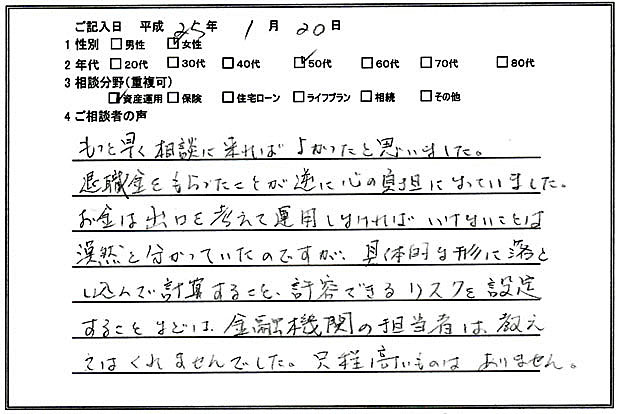 ご記入日 平成 25 年 1 月 20 日
1 性別 □男性 ☑女性
2 年代 □20代 □30代 □40代 ☑50代 □60代 □70代 □80代
3 相談分野(重複可)
☑資産運用 □保険 □住宅ローン □ライフプラン □相続 □その他
4 ご相談者の声
もっと早く相談に来ればよかったと思いました。
退職金をもらったことが逆に心の負担になっていました。
お金は出口を考えて運用しなければいけないことは
漠然と分かっていたのですが、具体的な形に落と
し込んで計算すること、許容できるリスクを設定
することなどは、金融機関の担当者は、教え
てはくれませんでした。只程高いものはありません。